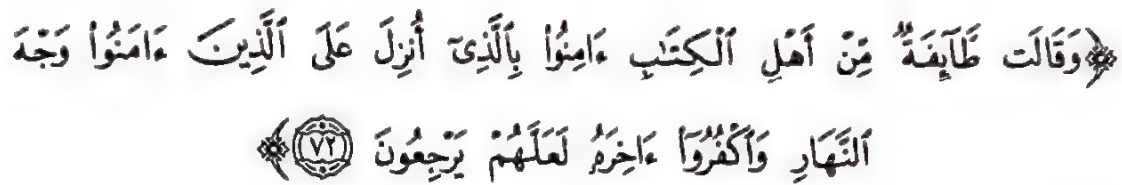 ﴿وَقَالَت طَّآئِفَةٌ مِّنْ أَهْلِ ٱلْكِتَـٰبِ ءَامِنُوا۟ بِٱلَّذِىٓ أُنزِلَ عَلَى ٱلَّذِينَ ءَامَنُوا۟ وَجْهَ
ٱلنَّهَارِ وَٱكْفُرُوٓا۟ ءَاخِرَهُۥ لَعَلَّهُمْ يَرْجِعُونَ ٧٢﴾